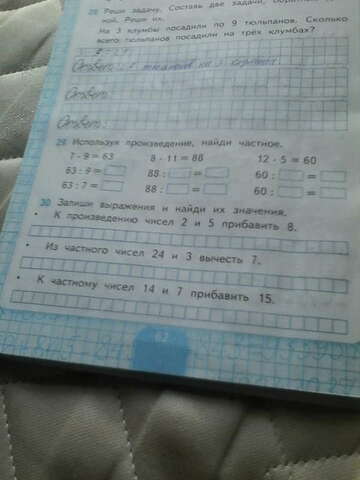 28 Реши задачу. Составь две задачи, обратные
ной. Реши их.
На 3 клумбы посадили по 9 тюльпанов. Сколько
всего тюльпанов посадили на трёх клумбах?
Ответ:
Ответ:
Ответ:
29 Используя произведение, найди частное.
7 · 9 = 63 8 · 11 = 88 12 · 5 = 60
63 : 9 = 88 : = 60 : =
63 : 7 = 88 : = 60 : =
30 Запиши выражения и найди их значения.
• К произведению чисел 2 и 5 прибавить 8.
• Из частного чисел 24 и 3 вычесть 7.
• К частному чисел 14 и 7 прибавить 15.